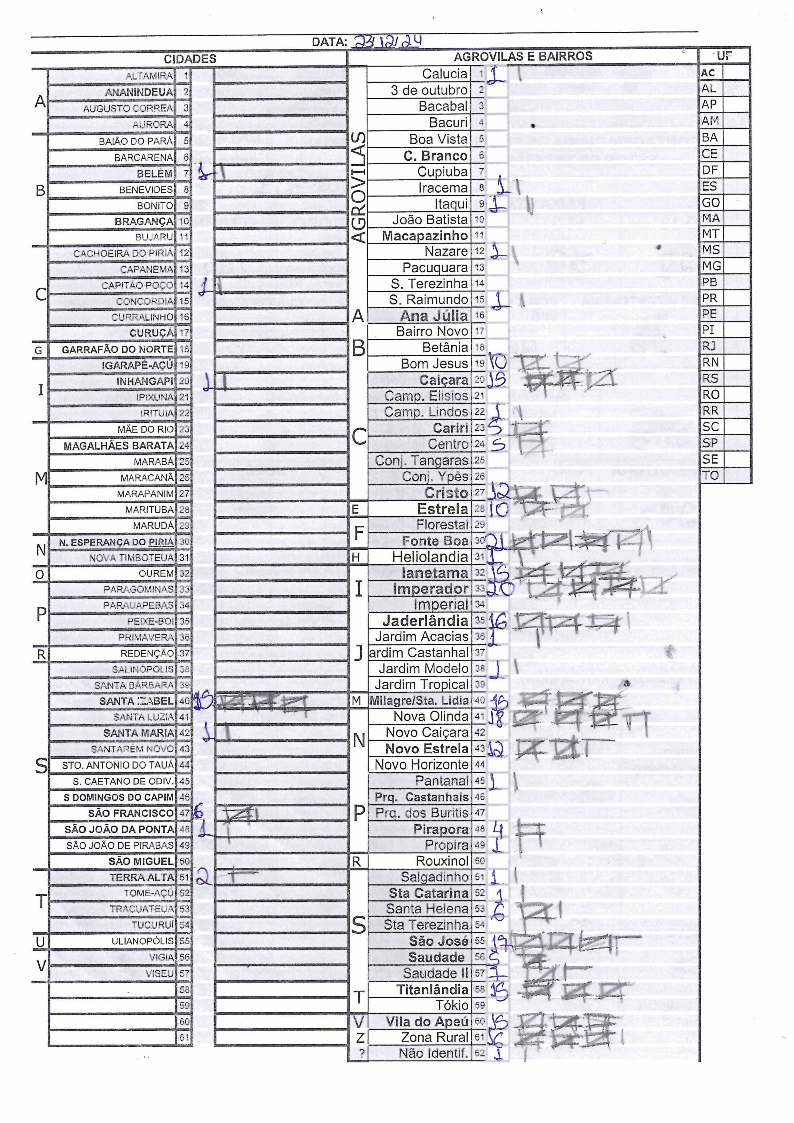 DATA: 23/12/24
CIDADES
A
ALTAMIRA 1
ANANINDEUA 2
AUGUSTO CORREA 3
AURORA 4
B
BAIÃO DO PARÁ 5
BARCARENA 6
BELÉM 7 1
BENEVIDES 8
BONITO 9
BRAGANÇA 10
BUJARU 11
C
CACHOEIRA DO PIRIA 12
CAPANEMA 13
CAPITÃO POÇO 14 1
CONCORDIA 15
CURRALINHO 16
CURUÇA 17
G GARRAFÃO DO NORTE 18
I
IGARAPÉ-AÇÚ 19
INHANGAPI 20 1
IPIXUNA 21
IRITUIA 22
M
MÃE DO RIO 23
MAGALHÃES BARATA 24
MARABÁ 25
MARACANÃ 26
MARAPANIM 27
MARITUBA 28
MARUDÁ 29
N
N. ESPERANÇA DO PIRIA 30
NOVA TIMBOTEUA 31
O OUREM 32
P
PARAGOMINAS 33
PARAUAPEBAS 34
PEIXE-BOI 35
PRIMAVERA 36
R REDENÇÃO 37
S
SALINÓPOLIS 38
SANTA BÁRBARA 39
SANTA IZABEL 40 15
SANTA LUZIA 41
SANTA MARIA 42 1
SANTARÉM NOVO 43
STO. ANTONIO DO TAUÁ 44
S. CAETANO DE ODIV. 45
S DOMINGOS DO CAPIM 46
SÃO FRANCISCO 47 6
SÃO JOÃO DA PONTA 48 1
SÃO JOÃO DE PIRABAS 49
SÃO MIGUEL 50
T
TERRA ALTA 51 2
TOME-AÇÚ 52
TRACUATEUA 53
TUCURUÍ 54
U ULIANOPÓLIS 55
V
VIGIA 56
VISEU 57
58
59
60
61
AGROVILAS E BAIRROS
AGROVILAS
Calucia 1 1
3 de outubro 2
Bacabal 3
Bacuri 4
Boa Vista 5
C. Branco 6
Cupiuba 7
Iracema 8 1
Itaqui 9 1
João Batista 10
Macapazinho 11
Nazare 12 1
Pacuquara 13
S. Terezinha 14
S. Raimundo 15 1
A Ana Júlia 16
B
Bairro Novo 17
Betânia 18
Bom Jesus 19 10
C
Caiçara 20 15
Camp. Elisios 21
Camp. Lindos 22 1
Cariri 23 5
Centro 24 5
Conj. Tangaras 25
Conj. Ypês 26
Cristo 27 12
E Estrela 28 10
F
Florestal 29
Fonte Boa 30 21
H Heliolandia 31 1
I
Ianetama 32 15
Imperador 33 20
Imperial 34
J
Jaderlândia 35 16
Jardim Acacias 36 1
ardim Castanhal 37
Jardim Modelo 38 1
Jardim Tropical 39
M Milagre/Sta. Lidia 40 15
N
Nova Olinda 41 18
Novo Caiçara 42
Novo Estrela 43 12
Novo Horizonte 44
P
Pantanal 45 1
Prq. Castanhais 46
Prq. dos Buritis 47
Pirapora 48 4
Propira 49 1
R Rouxinol 50
S
Salgadinho 51 1
Sta Catarina 52 1
Santa Helena 53 6
Sta Terezinha 54
São José 55 19
Saudade 56 5
Saudade II 57
T
Titanlândia 58 15
Tókio 59
V Vila do Apeú 60 15
Z Zona Rural 61
? Não Identif. 62 1
UF
AC
AL
AP
AM
BA
CE
DF
ES
GO
MA
MT
MS
MG
PB
PR
PE
PI
RJ
RN
RS
RO
RR
SC
SP
SE
TO